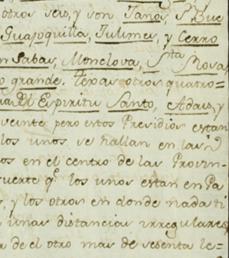 otros seis, y son Janos, S. Bue
Guajoquilla, Julimes, y Cerro
n Sabas, Monclova, Sta Rosa,
o grande. Texas otros quatro=
ia Dl Espiritu Santo, Adaes, y
veinte, pero estos Presidios estan
los unos se hallan en las
os en el centro de las Provin-
suerte qe los unos estan en Pa
, y los otros en donde nada ti
unas distancias irregulares
a de el otro mas de sesenta le=